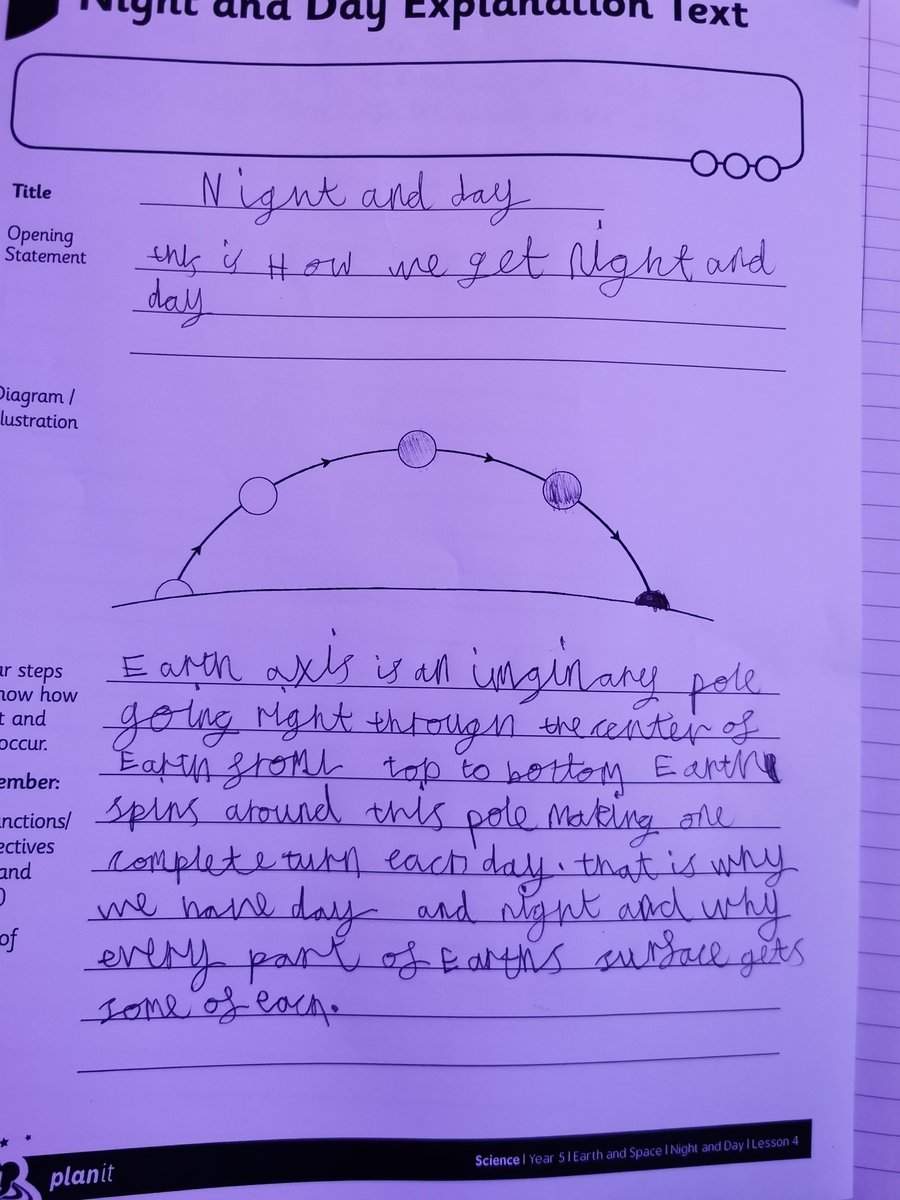 Night and Day Explanation Text
Title
Night and day
Opening
Statement
this is How we get Night and
day
Diagram /
lustration
ar steps
now how
t and
occur.
ember:
nctions/
ectives
and
)
of
Earth axis is an imginary pole
going right through the center of
Earth from top to bottom Earth
spins around this pole making one
complete turn each day. that is why
we have day and night and why
every part of Earths surface gets
some of each.
planit
Science | Year 5 | Earth and Space | Night and Day | Lesson 4